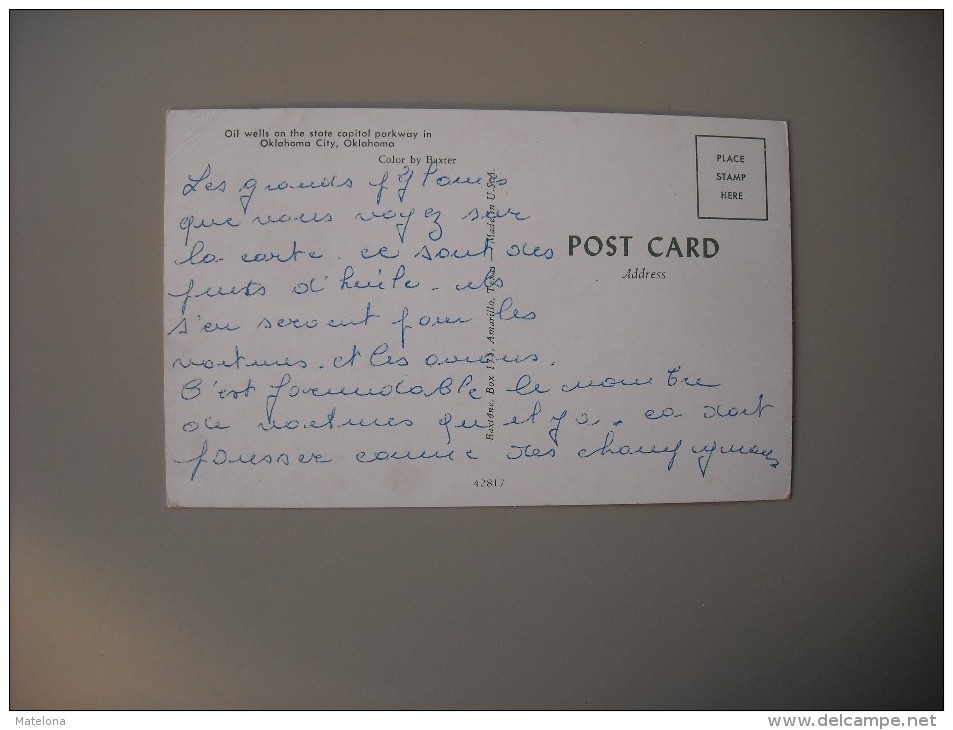 Oil wells on the state capitol parkway in
Oklahoma City, Oklahoma
Color by Baxter
PLACE
STAMP
HERE
POST CARD
Address
Baxtone, Box 173, Amarillo, Texas Made in U.S.A.
Les grands pylones
que vous voyez sur
la carte. ce sont des
puits d'huile. ils
s'en servent pour les
voitures. et les avions.
C'est formidable le nombre
de voitures qu'il y a. ca doit
pousser comme des champignons
42817
Matelona
www.delcampe.net